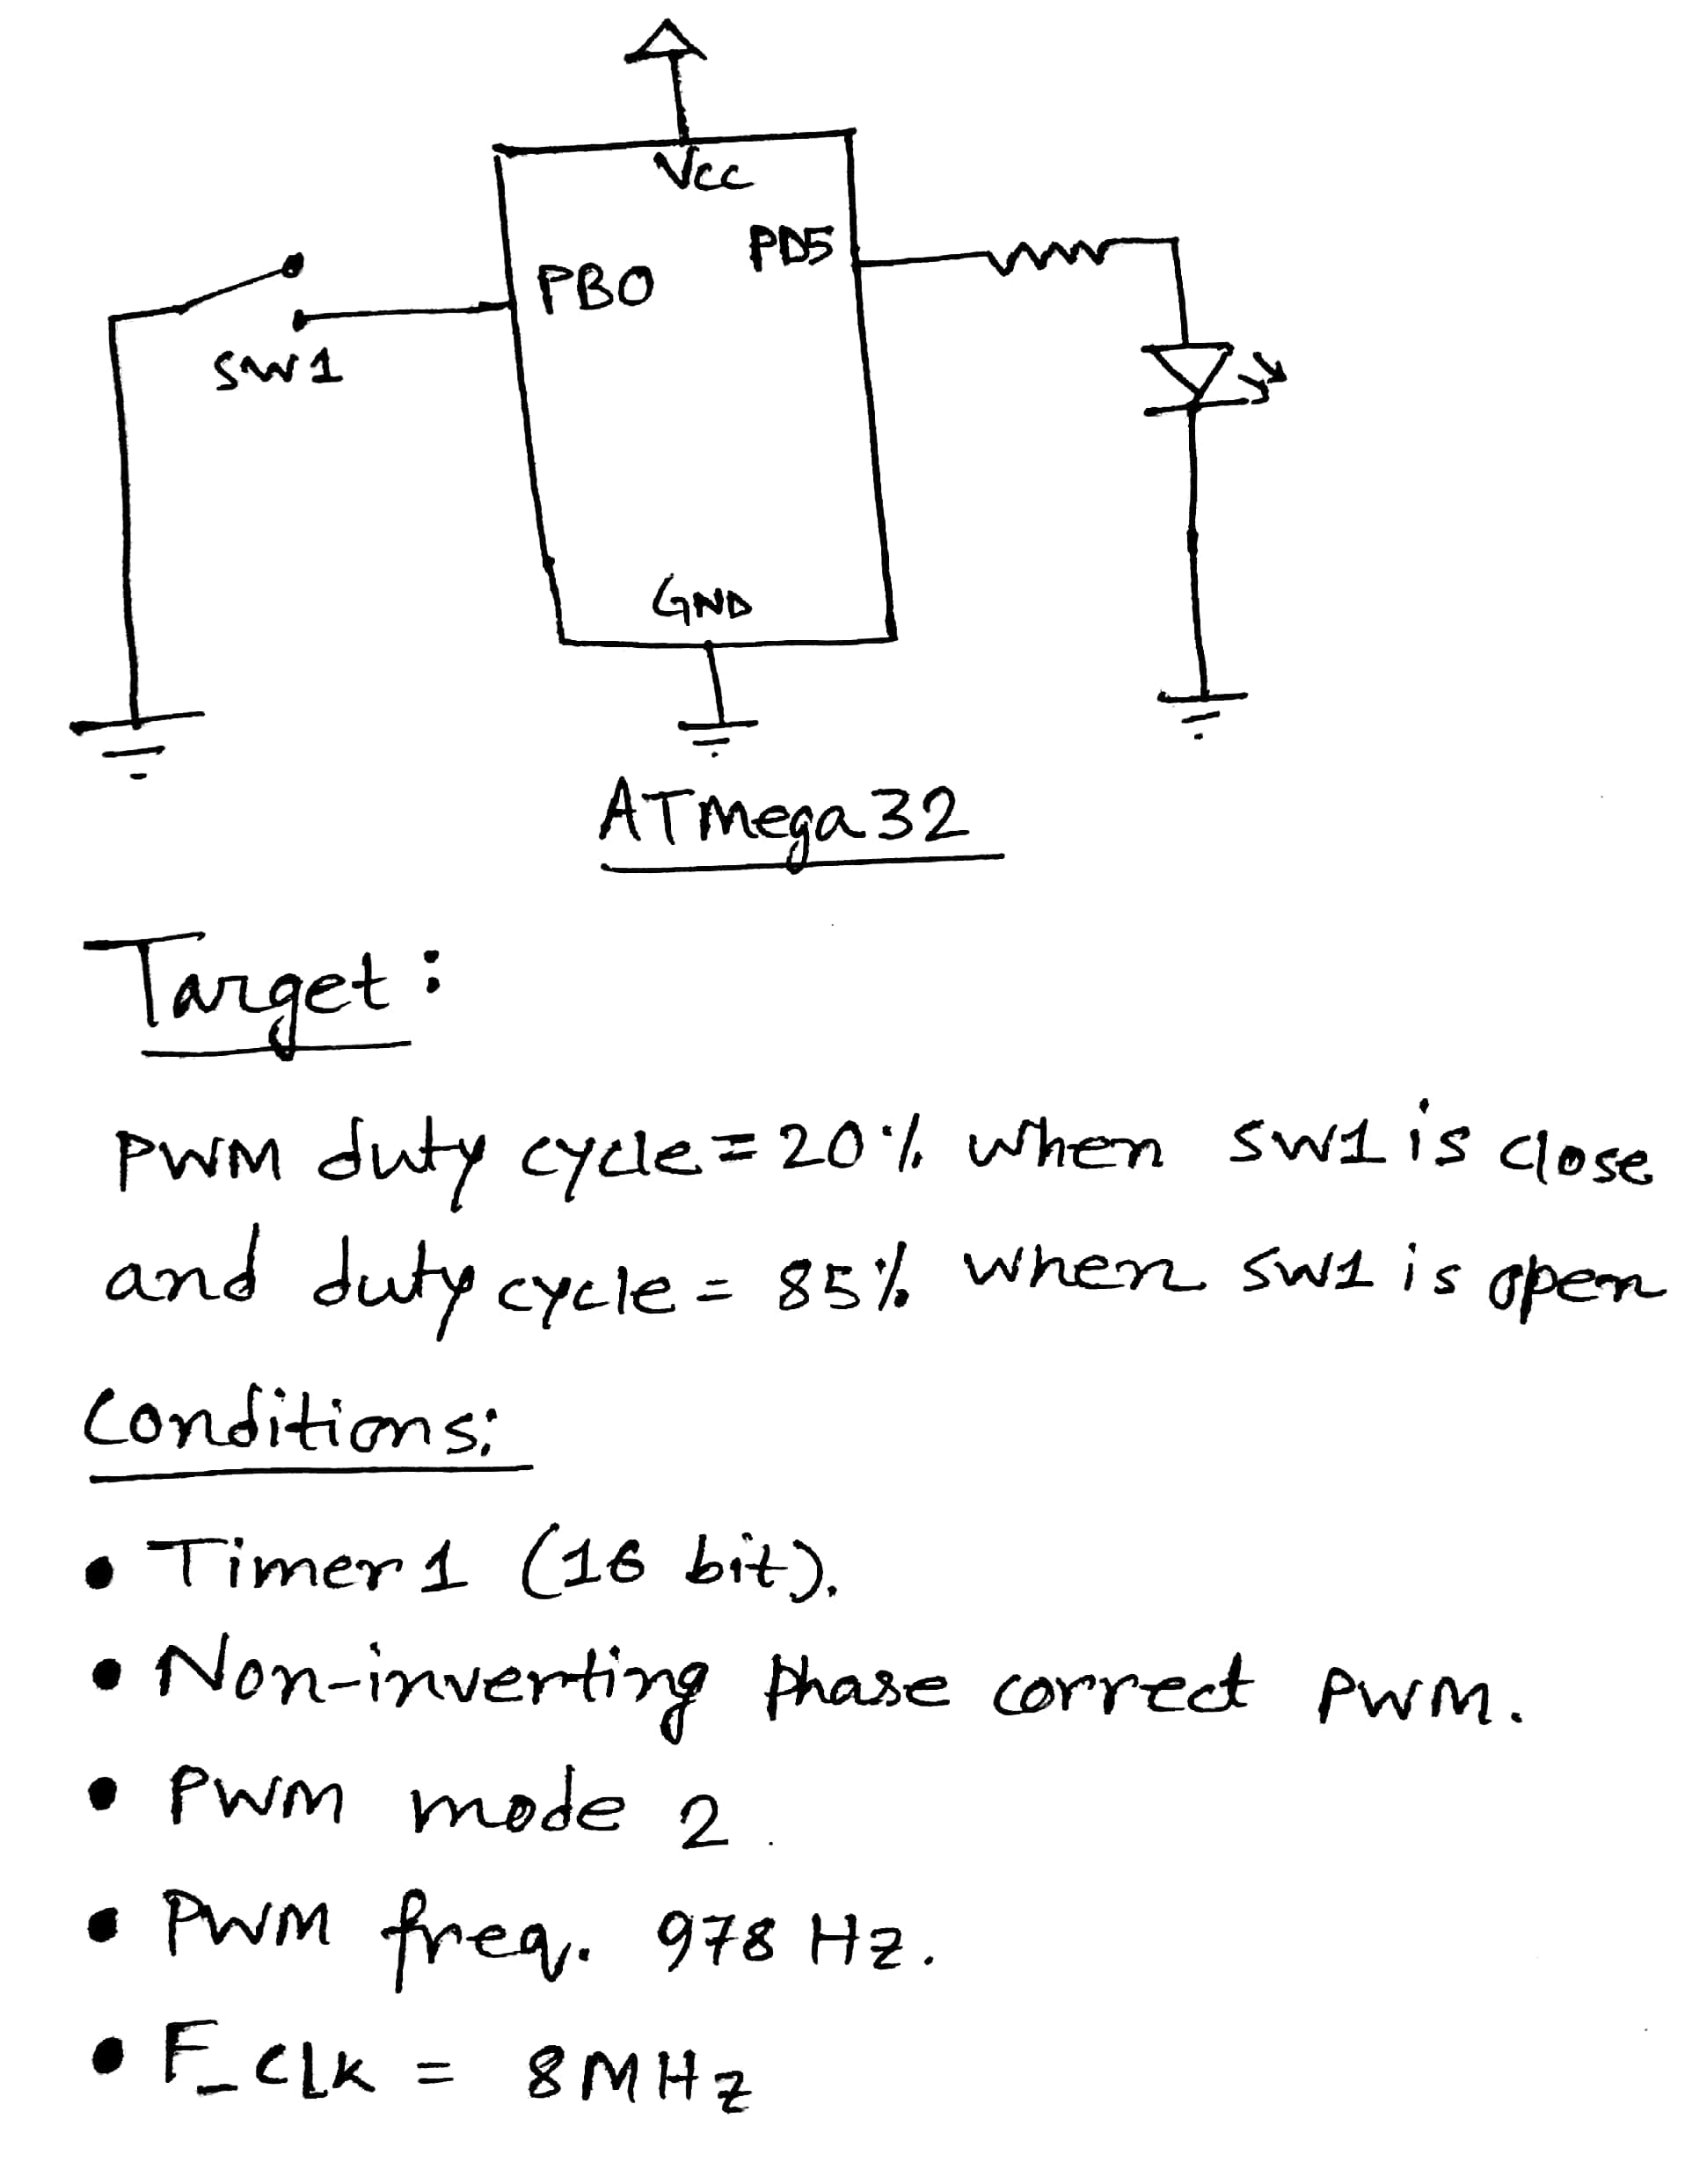 Vcc
PD5
PB0
SW1
GND
ATMega32
Target:
PWM duty cycle = 20% when SW1 is close
and duty cycle = 85% when SW1 is open
Conditions:
• Timer1 (16 bit).
• Non-inverting phase correct PWM.
• PWM mode 2.
• PWM freq. 978 Hz.
• F_Clk = 8MHz